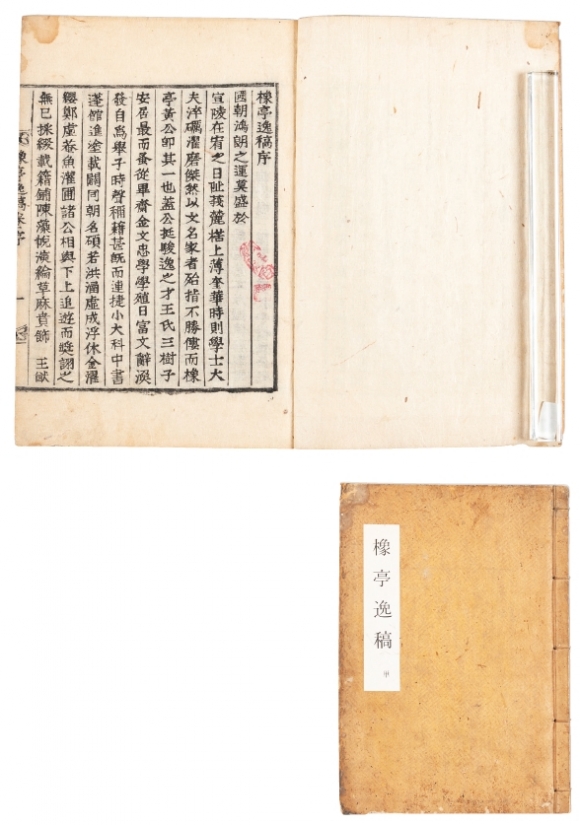 橡亭逸稿序
國朝鴻朗之運莫盛於
宣陵在宥之日卙棫麓楛上薄奎華時則學士大
夫淬礪濯磨燦然以文名家者殆指不勝僂而橡
亭黃公卽其一也蓋公挺駿逸之才王氏三樹子
安居最而蚤從畢齋金文忠學學殖日富文辭渙
發自爲擧子時聲稱藉甚旣而連捷小大科中書
蓬館進塗載闢同朝名碩若洪涵虛成浮休金濯
纓鄭虛菴魚灌圃諸公相與下上追遊而奬詡之
無已揉綴載籍鋪陳藻帨演綸草麻賁飾 王猷
橡亭逸稿序
一
橡亭逸稿
單